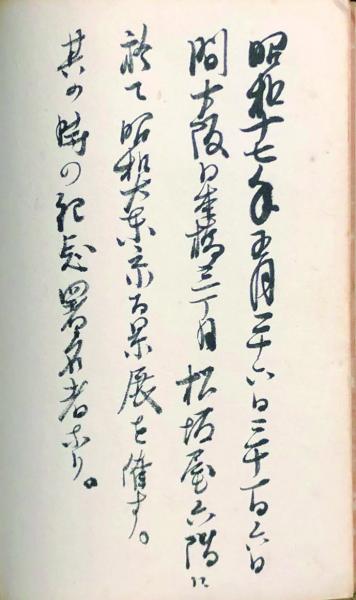 昭和十七年五月二十六日三十一日六日
間大阪日本橋三丁目松坂屋六階に
於て昭和大東京百景展を催す。
其の時の記念署名者なり。